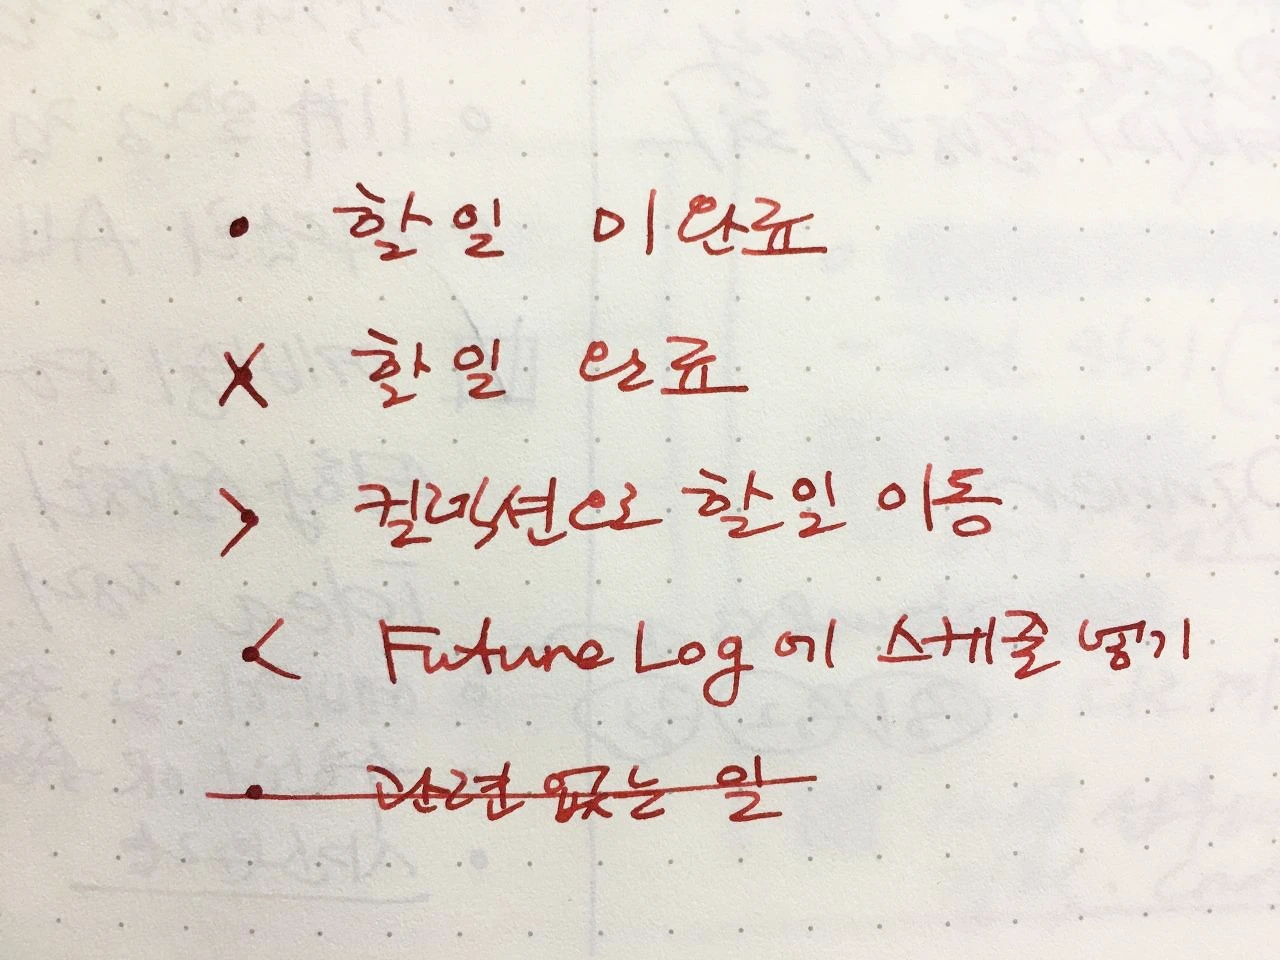 • 할일 미완료
× 할일 완료
> 컬렉션으로 할일 이동
< Future Log에 스케줄 넣기
• 관련 없는 일